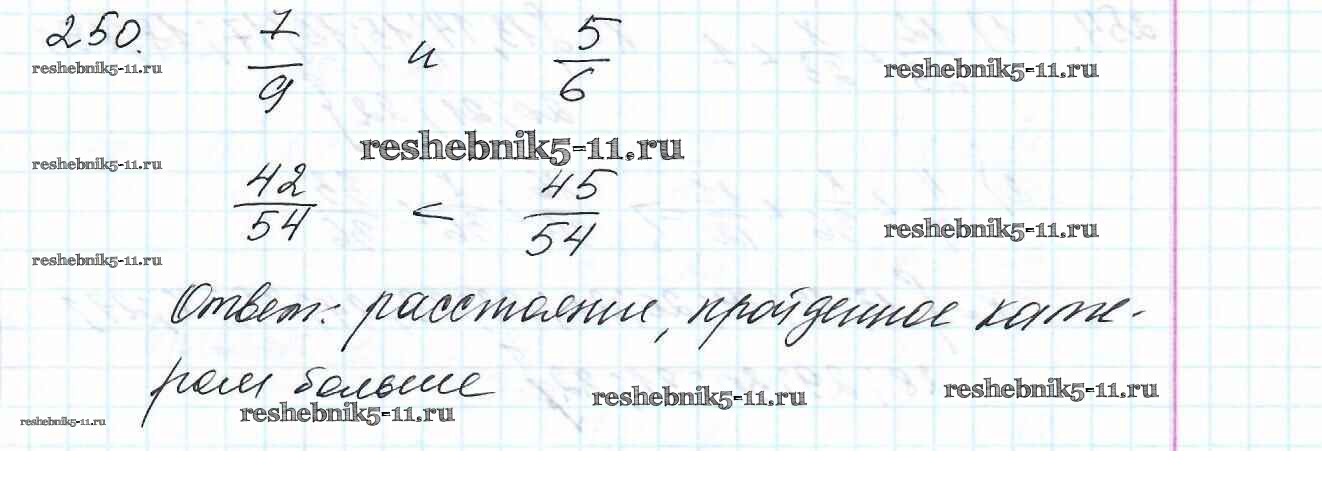 250. 7/9 и 5/6
reshebnik5-11.ru reshebnik5-11.ru
reshebnik5-11.ru
reshebnik5-11.ru
42/54 < 45/54
reshebnik5-11.ru
reshebnik5-11.ru
Ответ: расстояние, пройденное кате-
ром больше
reshebnik5-11.ru reshebnik5-11.ru reshebnik5-11.ru reshebnik5-11.ru